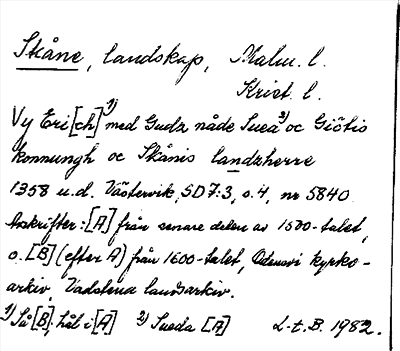 Skåne, landskap, Malm. l.
Krist. l.
Vy Eri[ch]¹⁾ med Gudz nåde Suea²⁾ oc Giötis
konnungh oc Skånis landzherre
1358 u.d. Västervik, SD 7:3, s. 4, nr 5840
Avskrifter: [A] från senare delen av 1500-talet,
o. [B] (efter A) från 1600-talet, Odensvi kyrko-
arkiv, Vadstena landsarkiv.
¹⁾ Så [B]; hål i [A] ²⁾ Sueda [A] L-t.B. 1982.